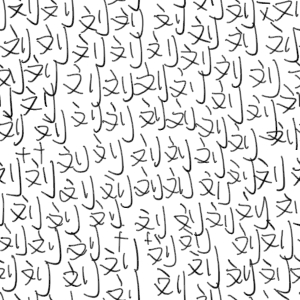 刘刘刘刘刘刘刘刘
刘刘刘刘刘刘刘刘
刘刘刘刘刘刘刘刘
刘刘刘刘刘刘刘刘
刘刘刘刘刘刘刘刘
刘刘刘刘刘刘刘
刘刘刘刘刘刘刘刘
刘刘刘刘刘刘刘刘
刘刘刘刘刘刘刘
刘刘刘刘刘刘刘刘